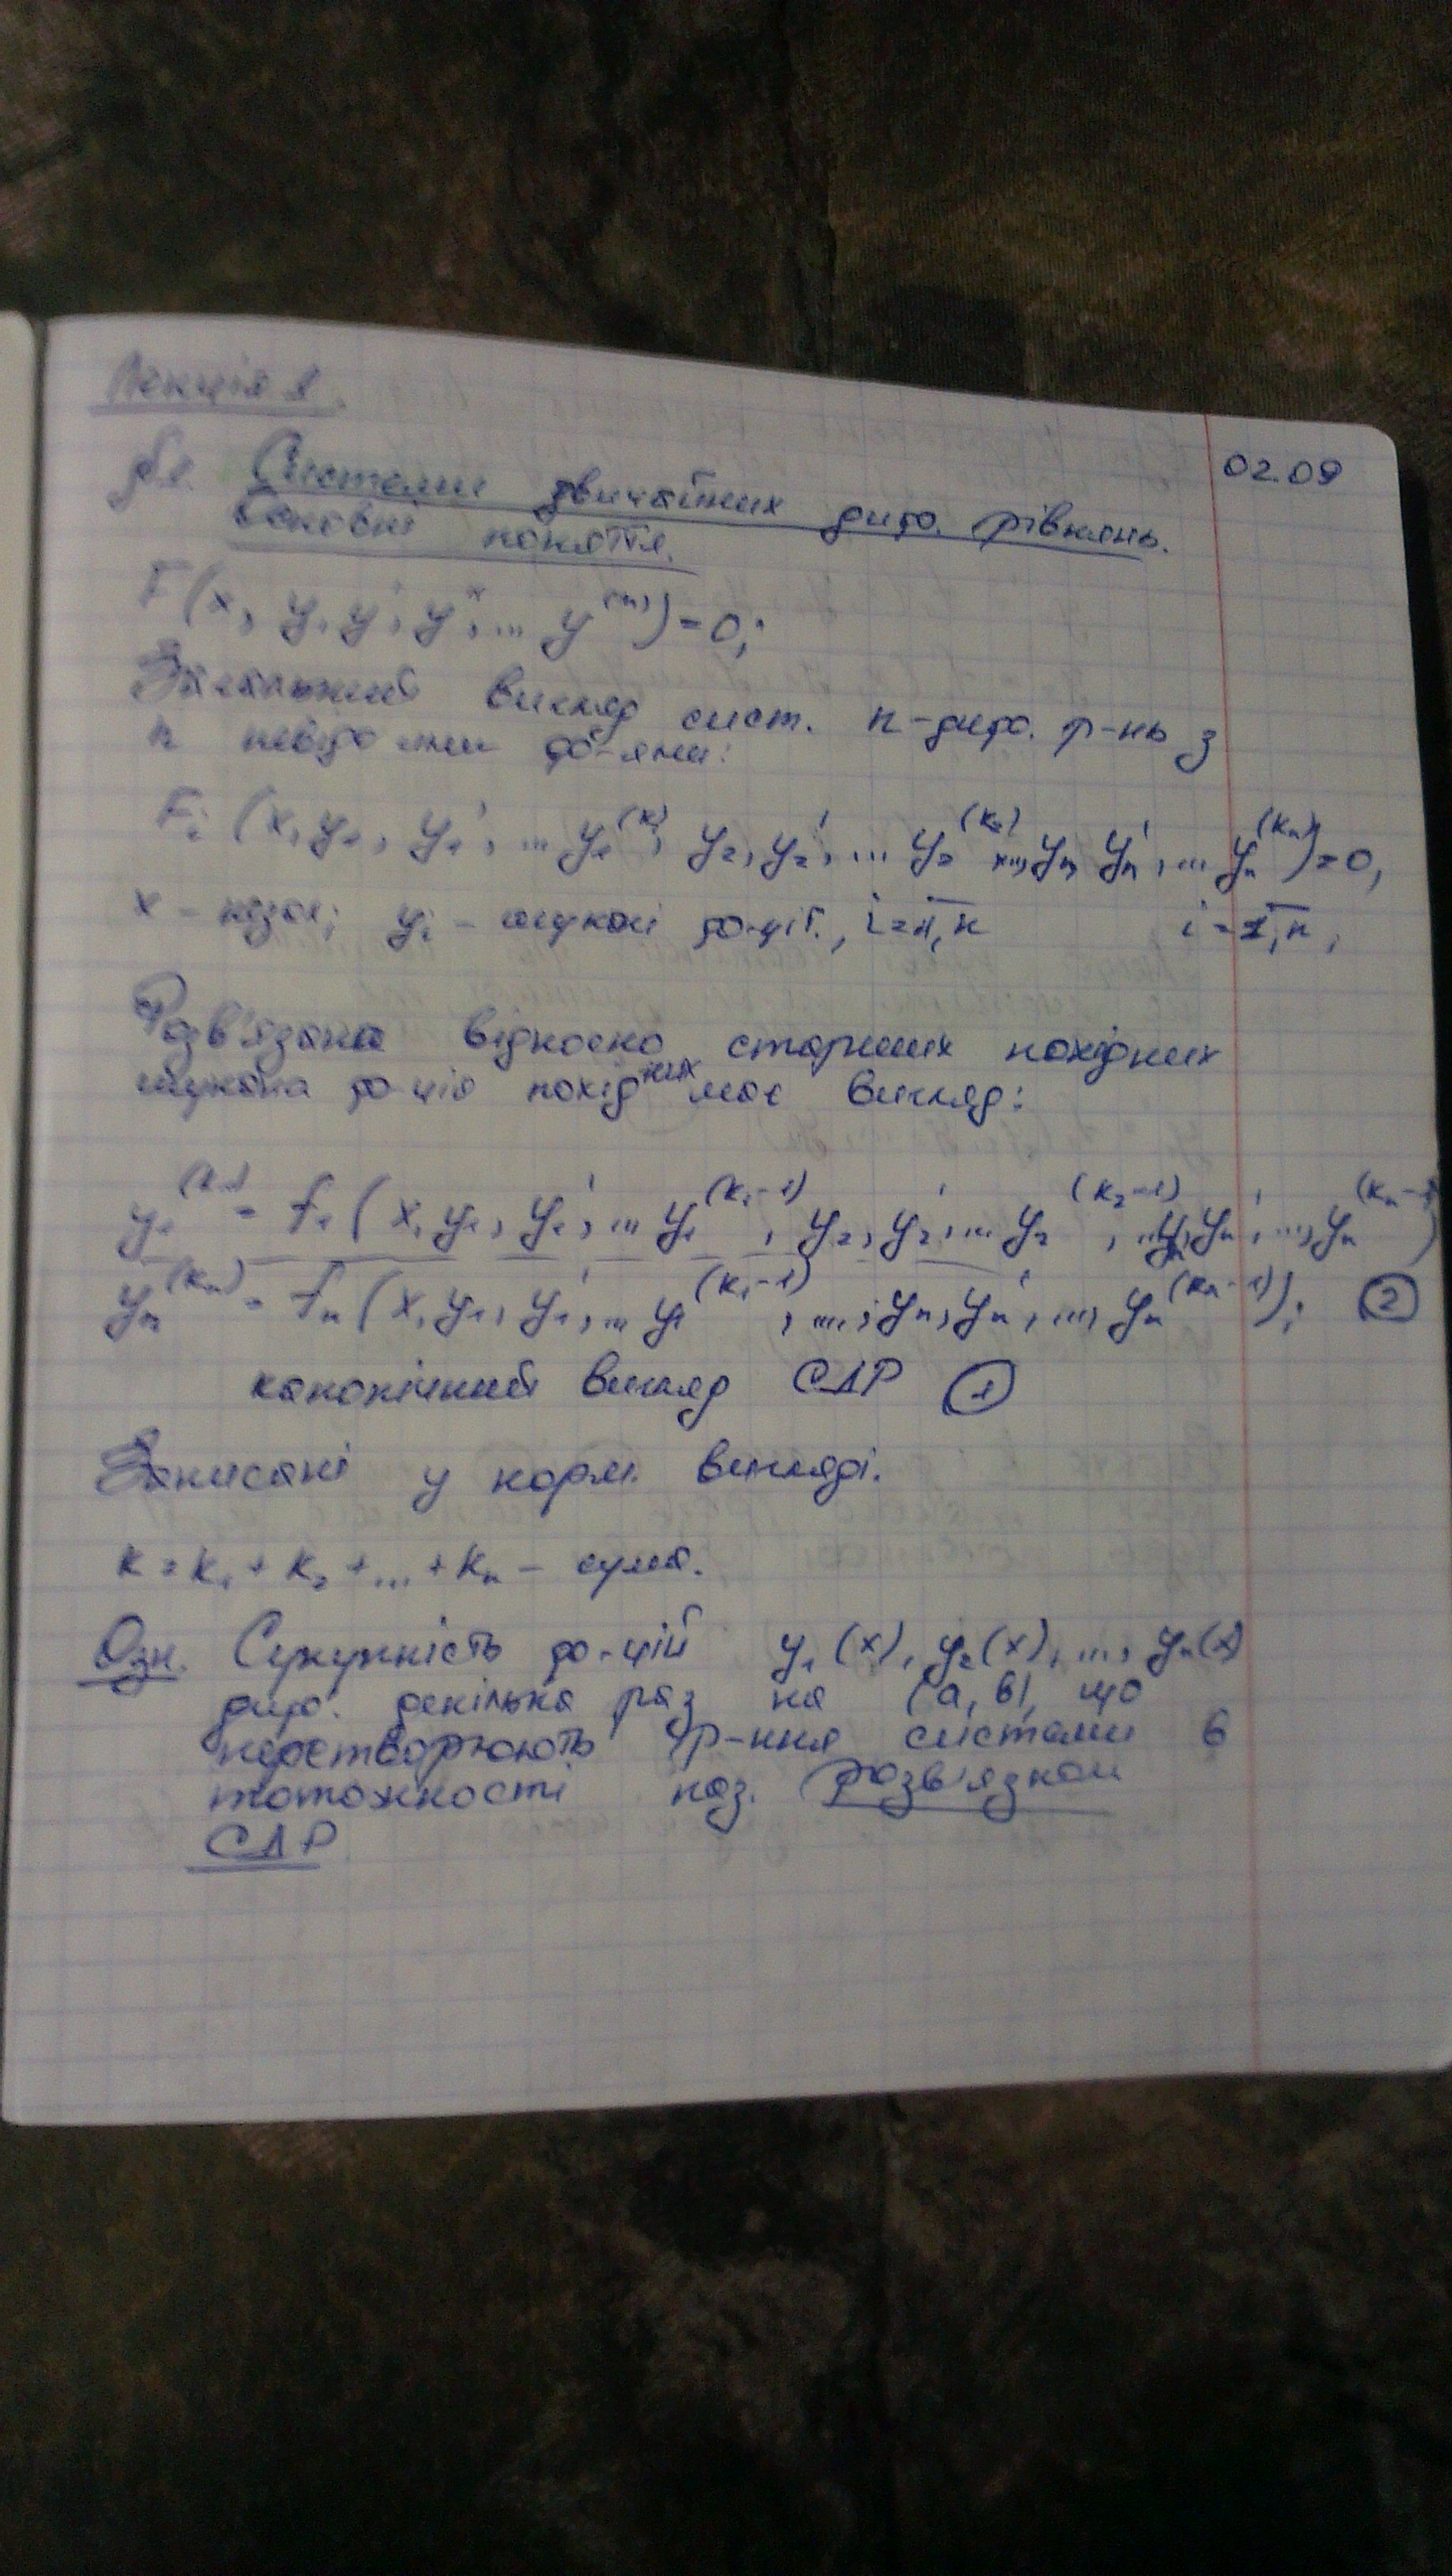 Лекція 1.
02.09
§1. Системи звичайних диф. рівнянь.
Основні поняття.
F(x, y, y', y'', ... y⁽ⁿ⁾) = 0;
Загальний вигляд сист. n-диф. р-нь з
n невідомими ф-ями:
Fᵢ (x, y₁, y₁', ... y₁⁽ᵏ¹⁾, y₂, y₂', ... y₂⁽ᵏ²⁾, ..., yₙ, yₙ', ... yₙ⁽ᵏⁿ⁾) = 0,
x - незал; yᵢ - шукані ф-ції, i = 1,n i = 1,n,
Розв'язана відносно старших похідних
шукана ф-ція похідних має вигляд:
y₁⁽ᵏ¹⁾ = f₁ (x, y₁, y₁', ... y₁⁽ᵏ¹⁻¹⁾, y₂, y₂', ... y₂⁽ᵏ²⁻¹⁾, ... yₙ, yₙ', ..., yₙ⁽ᵏⁿ⁻¹⁾)
yₙ⁽ᵏⁿ⁾ = fₙ (x, y₁, y₁', ... y₁⁽ᵏ¹⁻¹⁾, ..., yₙ, yₙ', ..., yₙ⁽ᵏⁿ⁻¹⁾); ②
канонічний вигляд СДР ①
Записані у норм. вигляді.
k = k₁ + k₂ + ... + kₙ - сума.
Озн. Сукупність ф-цій y₁(x), y₂(x), ..., yₙ(x)
диф. декілька раз на (a, b), що
перетворюють р-ння системи в
тотожності наз. розв'язком
СДР